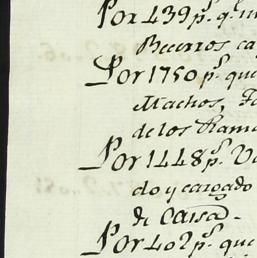 Por 439 p.s q.e
Becerros ca
Por 1750 p.s que
Machos, 
de los Rama
Por 1448 p.s V
do y cargado
de Carra.
Por 402 p.s que